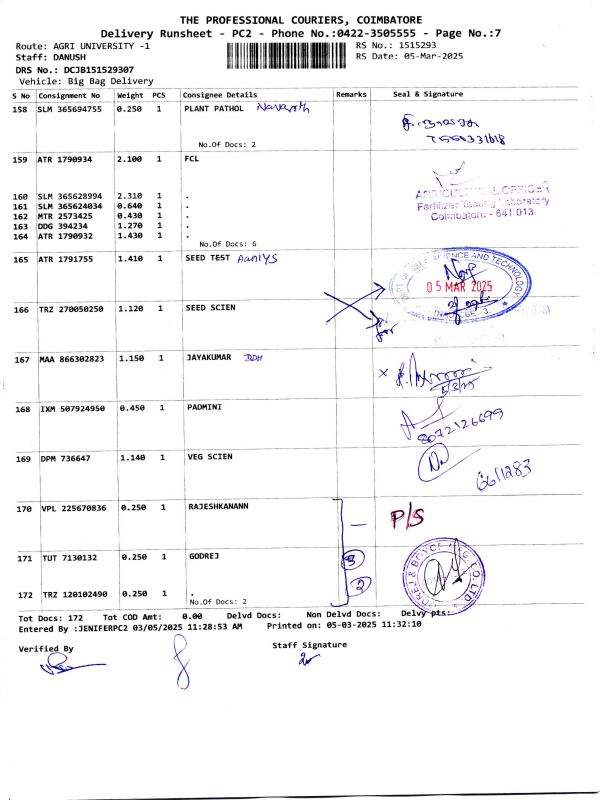 THE PROFESSIONAL COURIERS, COIMBATORE
Delivery Runsheet - PC2 - Phone No.:0422-3505555 - Page No.:7
Route: AGRI UNIVERSITY -1 RS No.: 1515293
Staff: DANUSH RS Date: 05-Mar-2025
DRS No.: DCJB151529307
Vehicle: Big Bag Delivery
S No Consignment No Weight PCS Consignee Details Remarks Seal & Signature
158 SLM 365694755 0.250 1 PLANT PATHOL
No.Of Docs: 2
159 ATR 1790934 2.100 1 FCL
160 SLM 365628994 2.310 1 .
AGRICULTURAL OFFICER
161 SLM 365624034 0.640 1 .
Fertilizer Testing Laboratory
162 MTR 2573425 0.430 1 .
Coimbatore - 641 013
163 DDG 394234 1.270 1 .
164 ATR 1790932 1.430 1 .
No.Of Docs: 6
165 ATR 1791755 1.410 1 SEED TEST
SCIENCE AND TECHNOLOGY
05 MAR 2025
166 TRZ 270050250 1.120 1 SEED SCIEN
for
167 MAA 866302823 1.150 1 JAYAKUMAR
5/3/25
168 IXM 507924950 0.450 1 PADMINI
8072126699
169 DPM 736647 1.140 1 VEG SCIEN
6611283
170 VPL 225670836 0.250 1 RAJESHKANANN
P/S
171 TUT 7130132 0.250 1 GODREJ
172 TRZ 120102490 0.250 1 .
2
No.Of Docs: 2
Tot Docs: 172 Tot COD Amt: 0.00 Delvd Docs: Non Delvd Docs: Delvy pts:
Entered By :JENIFERPC2 03/05/2025 11:28:53 AM Printed on: 05-03-2025 11:32:10
Verified By Staff Signature